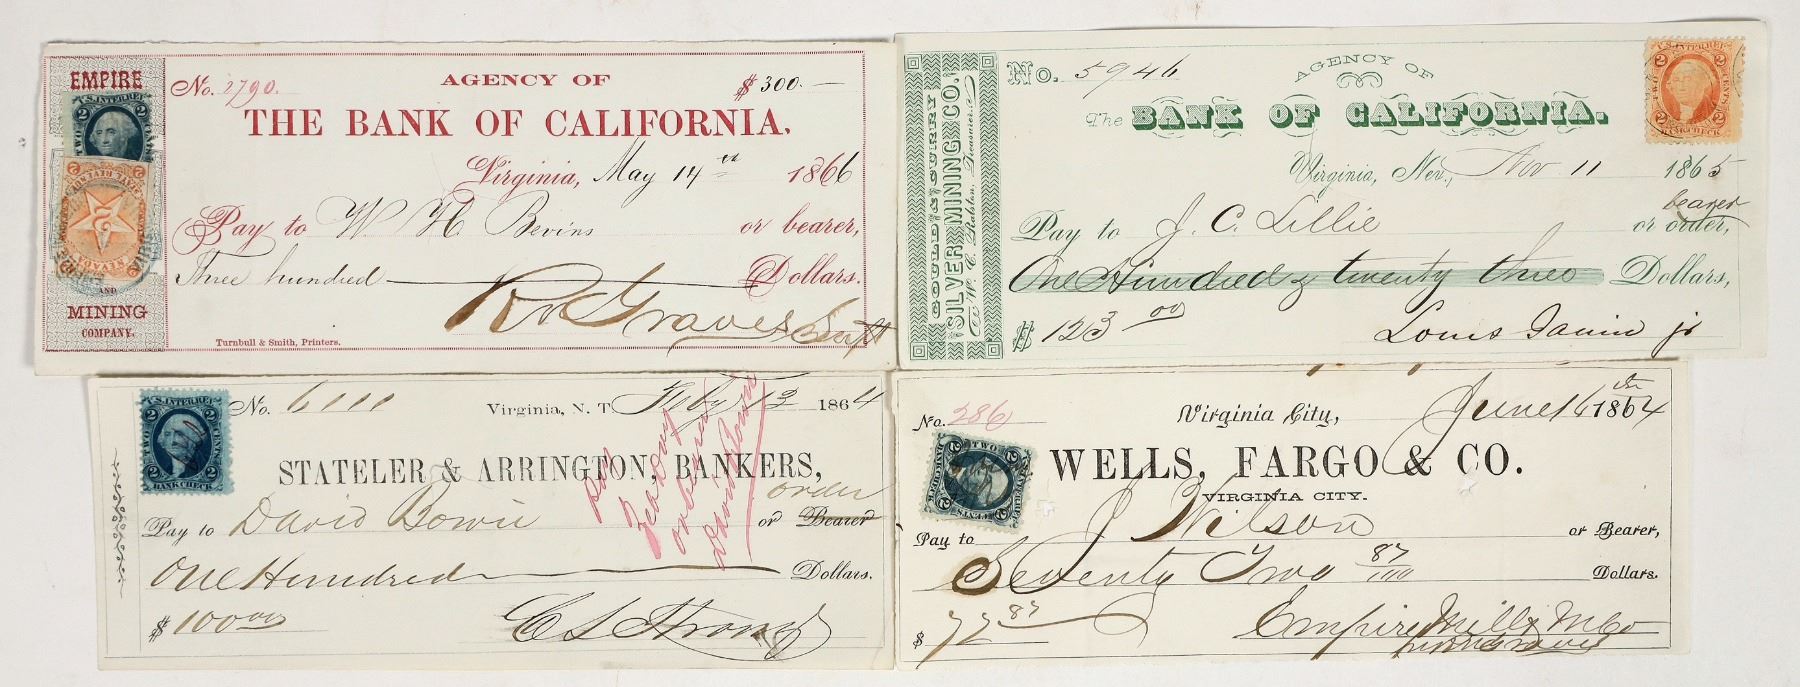 EMPIRE
AND
MINING
COMPANY.
U.S. INTER. REV.
2 2
TWO CENTS
NEVADA
No. 2790.
AGENCY OF
$ 300.—
THE BANK OF CALIFORNIA.
Virginia, May 14th 1866
Pay to W. H. Bevins or bearer,
Three hundred Dollars.
R N Graves Supt
Turnbull & Smith, Printers.
GOULD & CURRY
SILVER MINING CO.
W. C. Ralston, Treasurer.
No. 5946
AGENCY OF
The BANK OF CALIFORNIA.
U.S. INTER. REV.
2 2
TWO CENTS
BANK CHECK
Virginia, Nev., Nov 11 1865
bearer
Pay to J. C. Lillie or order,
One Hundred & twenty three Dollars,
$ 123 00
Louis Janin jr
U.S. INTER. REV.
2 2
TWO CENTS
BANK CHECK
No. 6111
Virginia, N. T. Feby 13 1864
STATELER & ARRINGTON, BANKERS,
order
Pay to David Bowie or Bearer
One Hundred Dollars.
$ 100.00
C L Strong
No. 286
Virginia City, June 16th 1864
WELLS, FARGO & CO.
VIRGINIA CITY.
Pay to J Wilson or Bearer,
Seventy Two 87/100 Dollars.
$ 72 87
Empire Mill & M Co